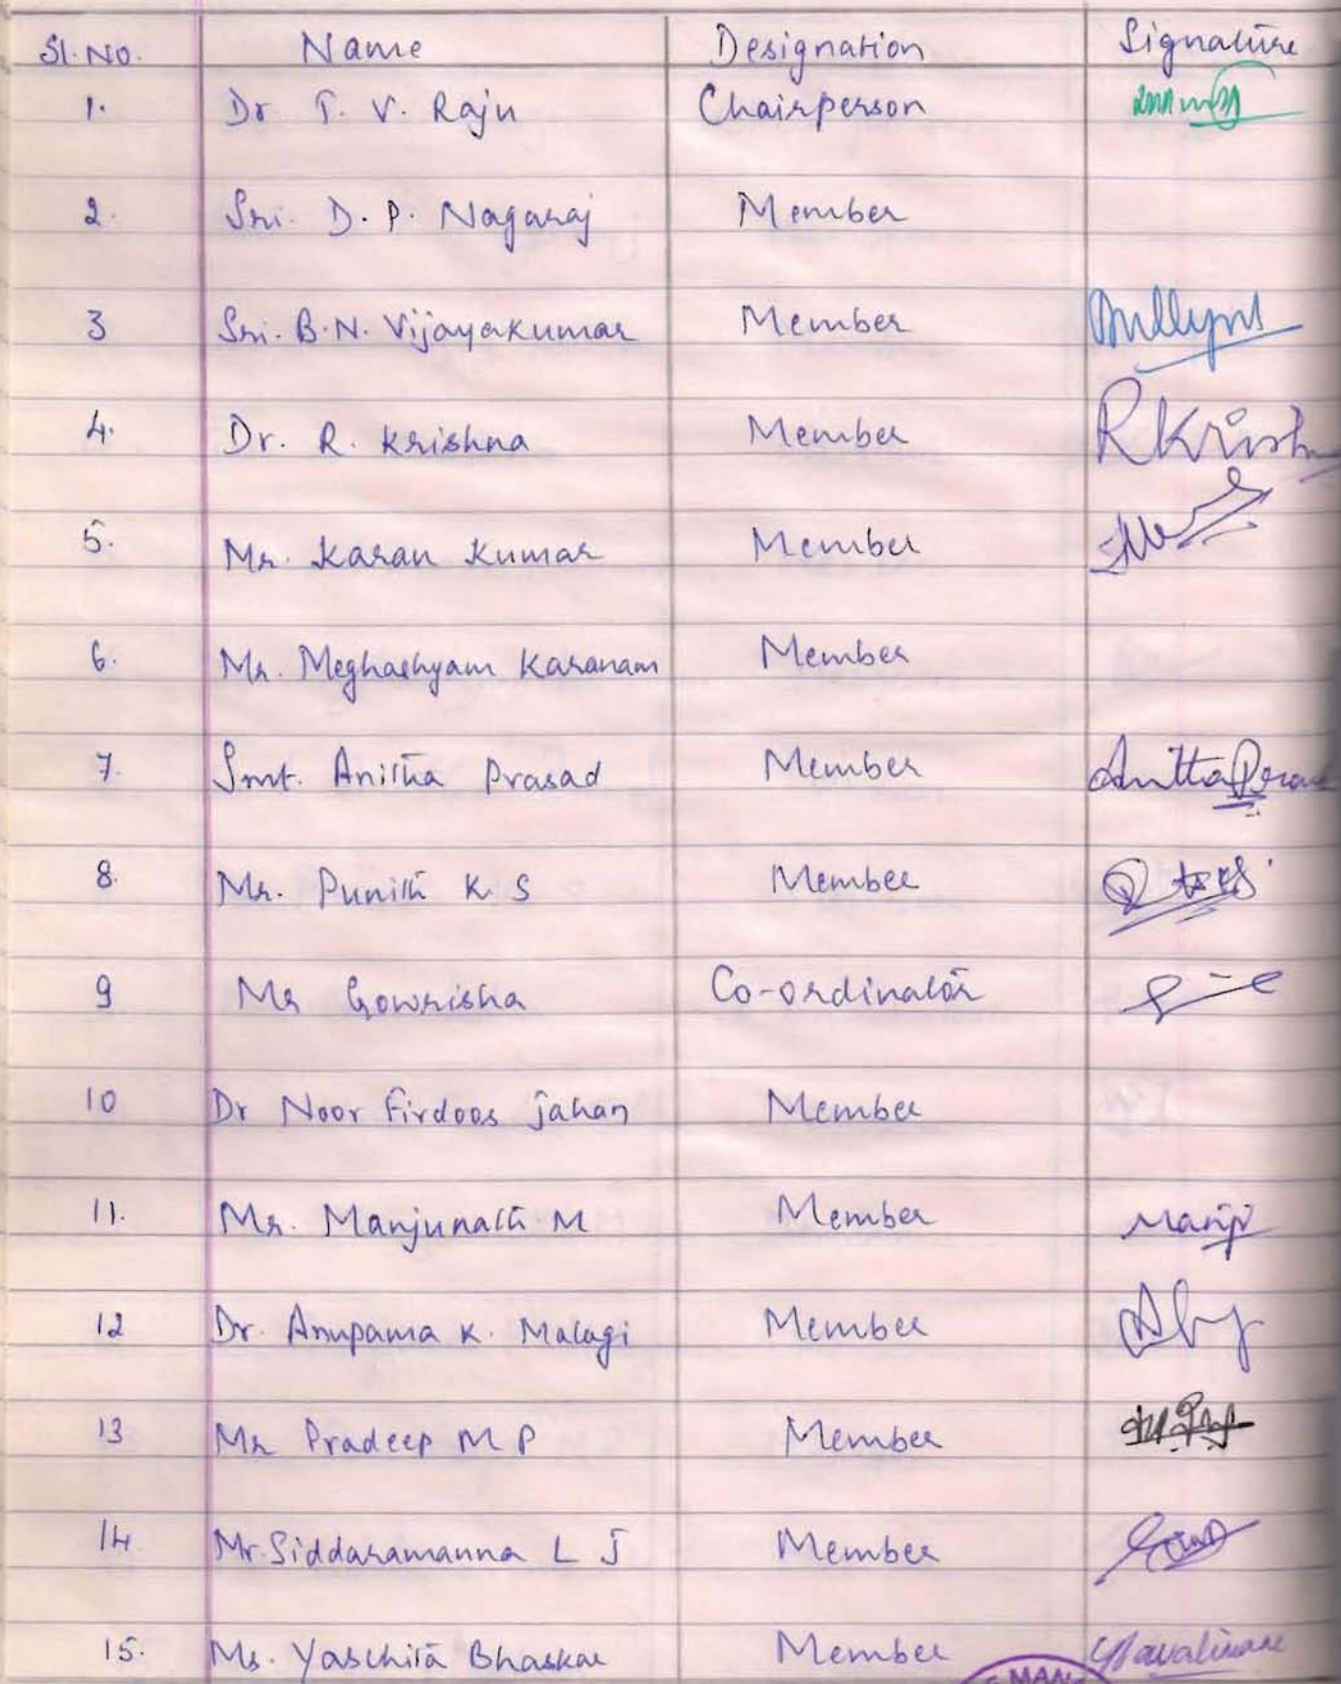 Sl. No. Name Designation Signature
1. Dr T. V. Raju Chairperson
2. Sri. D. P. Nagaraj Member
3 Sri. B. N. Vijayakumar Member
4. Dr. R. Krishna Member RKrish
5. Mr. Karan Kumar Member
6. Mr. Meghashyam Karanam Member
7. Smt. Anitha Prasad Member
8. Mr. Punith K S Member
9 Mr Gowrisha Co-ordinator
10 Dr Noor Firdoos Jahan Member
11. Mr. Manjunath M Member Manju
12 Dr. Anupama K. Malagi Member
13 Mr Pradeep M P Member
14 Mr. Siddaramanna L J Member
15. Ms. Yaschita Bhaskar Member
MAN